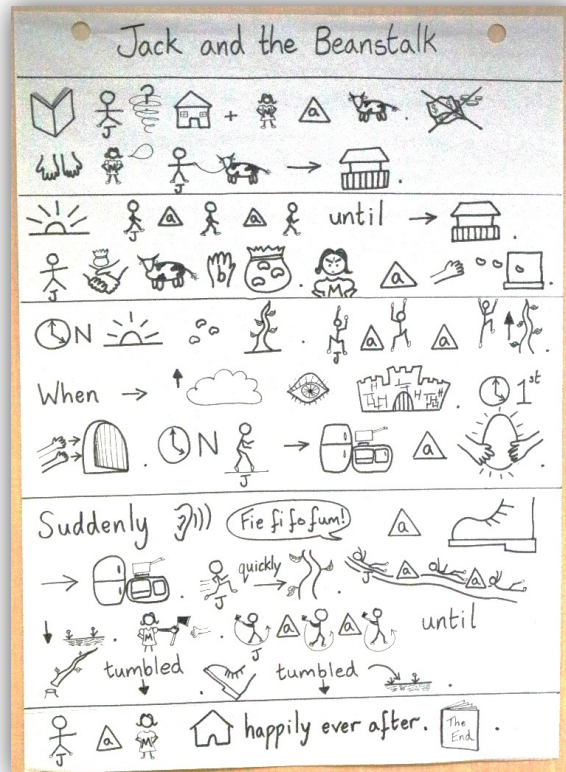 Jack and the Beanstalk
J + a .
J .
J a a until .
J b . M a .
N . J a a .
When . 1st
. N J a .
Suddenly Fie fi fo fum! a
J quickly J a a
. M . J a a until
tumbled . tumbled .
J a M happily ever after. The End .